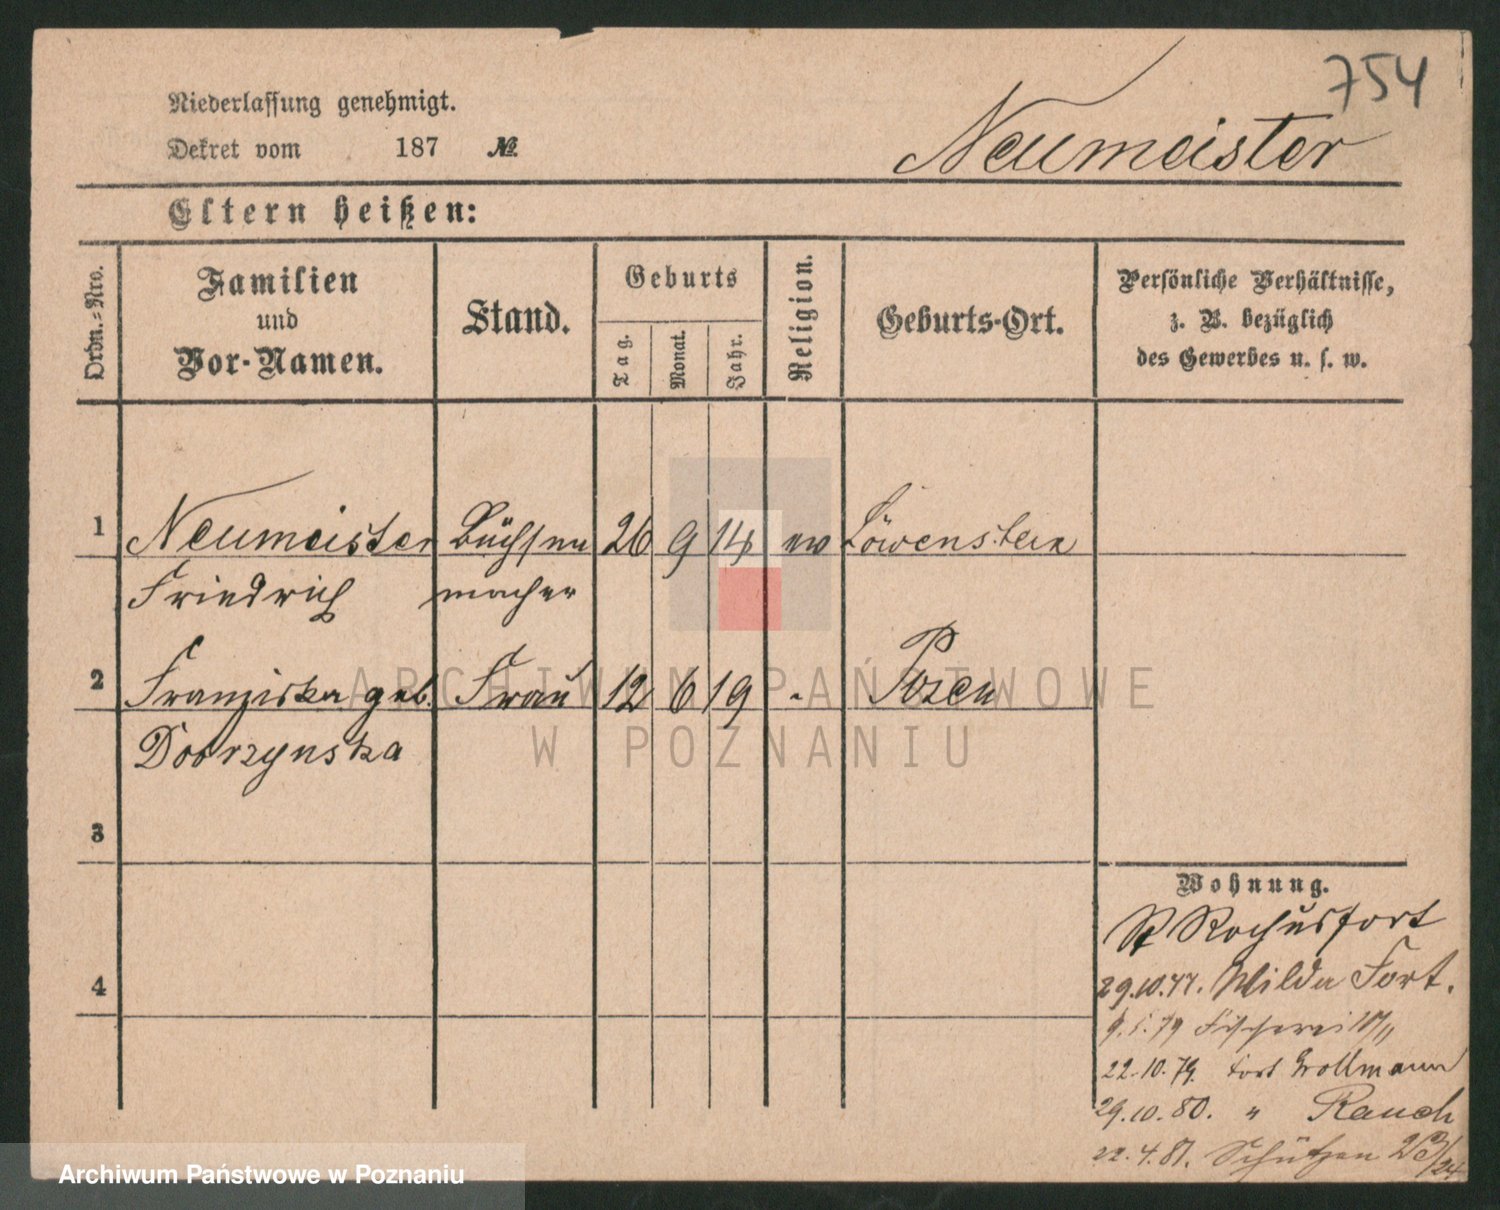 754
Niederlassung genehmigt.
Dekret vom 187 №
Neumeister
Eltern heißen:
Ordn.-Nro.
Familien
und
Vor-Namen.
Stand.
Geburts
Tag.
Monat.
Jahr.
Religion.
Geburts-Ort.
Persönliche Verhältnisse,
z. B. bezüglich
des Gewerbes u. s. w.
1 Neumeister Büchsen 26 9 14 ev Löwenstein
Friedrich macher
2 Franziska geb. Frau 12 6 19 - Posen
Dobrzynska
3
4
Wohnung.
St Rochusfort
29.10.77. Wilda Fort.
9.5.79 Fischerei 10/11
22.10.79. Fort Grollmann
29.10.80. " Rauch
22.4.81. Schützen 23/24
ARCHIWUM PAŃSTWOWE
W POZNANIU
Archiwum Państwowe w Poznaniu